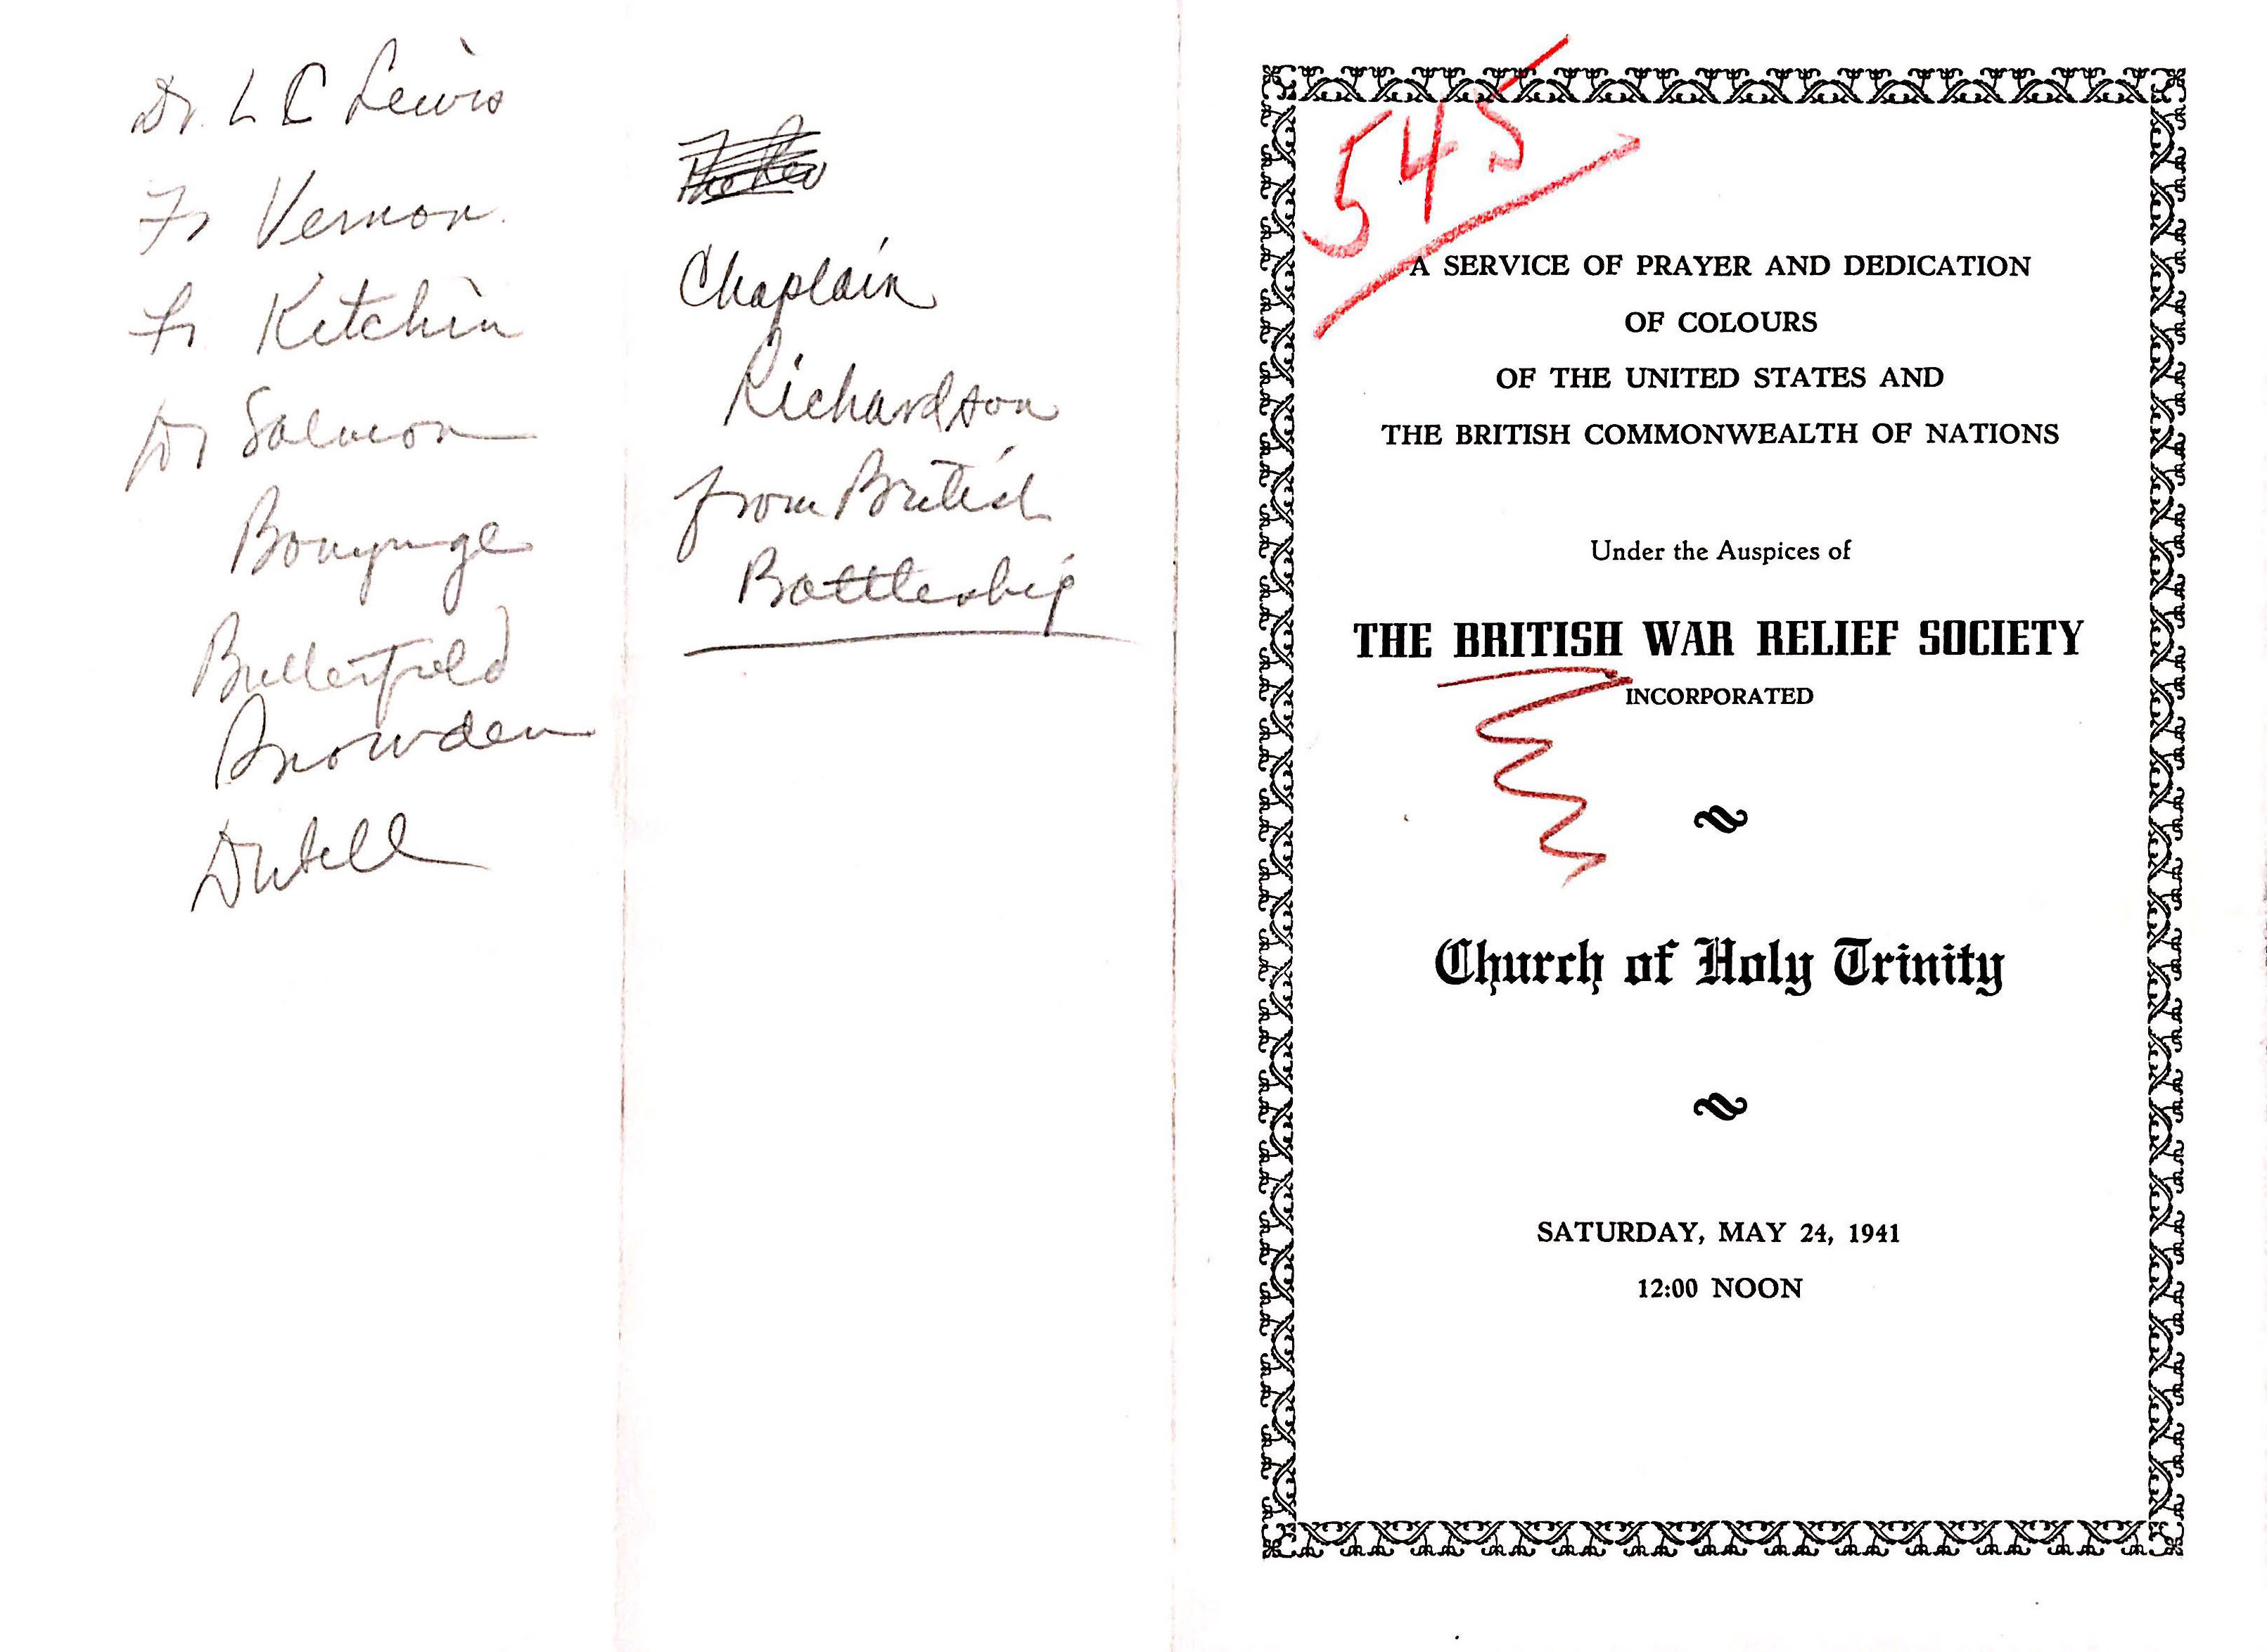 Dr. L C Lewis
Fr Vernon
Fr Kitchin
Dr Salmon
Bonynge
Butterfield
Snowden
Dubell
Chaplain
Richardson
from British
Battleship
545
A SERVICE OF PRAYER AND DEDICATION
OF COLOURS
OF THE UNITED STATES AND
THE BRITISH COMMONWEALTH OF NATIONS
Under the Auspices of
THE BRITISH WAR RELIEF SOCIETY
INCORPORATED
Church of Holy Trinity
SATURDAY, MAY 24, 1941
12:00 NOON